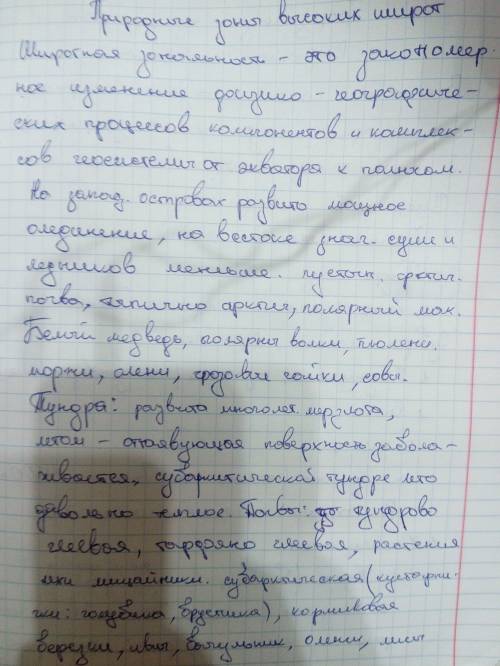 Природные зоны высоких широт
Широтная зональность - это закономер-
ное изменение физико - географиче-
ских процессов компонентов и комплек-
сов геосистемы от экватора к полюсам.
На запад. островах развито мощное
оледенение, на востоке знач. суши и
ледников меньше. пустын. арктич.
почва, типично арктич, полярный мак.
Белый медведь, полярны волки, тюлени.
моржи, олени, розовые чайки, совы.
Тундра: развита многолет. мерзлота,
летом - оттаявующая поверхность забола-
чивается, субарктической тундре лето
довольно теплое. Почвы: тундрово
глеевая, торфяно глеевая, растения
мхи лишайники. субарктическая (кустарни-
чки: голубика, брусника), кормиковая
березки, ивы, багульник, олени, лисы